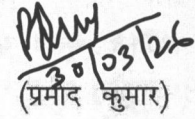 30/03/26
(प्रमोद कुमार)